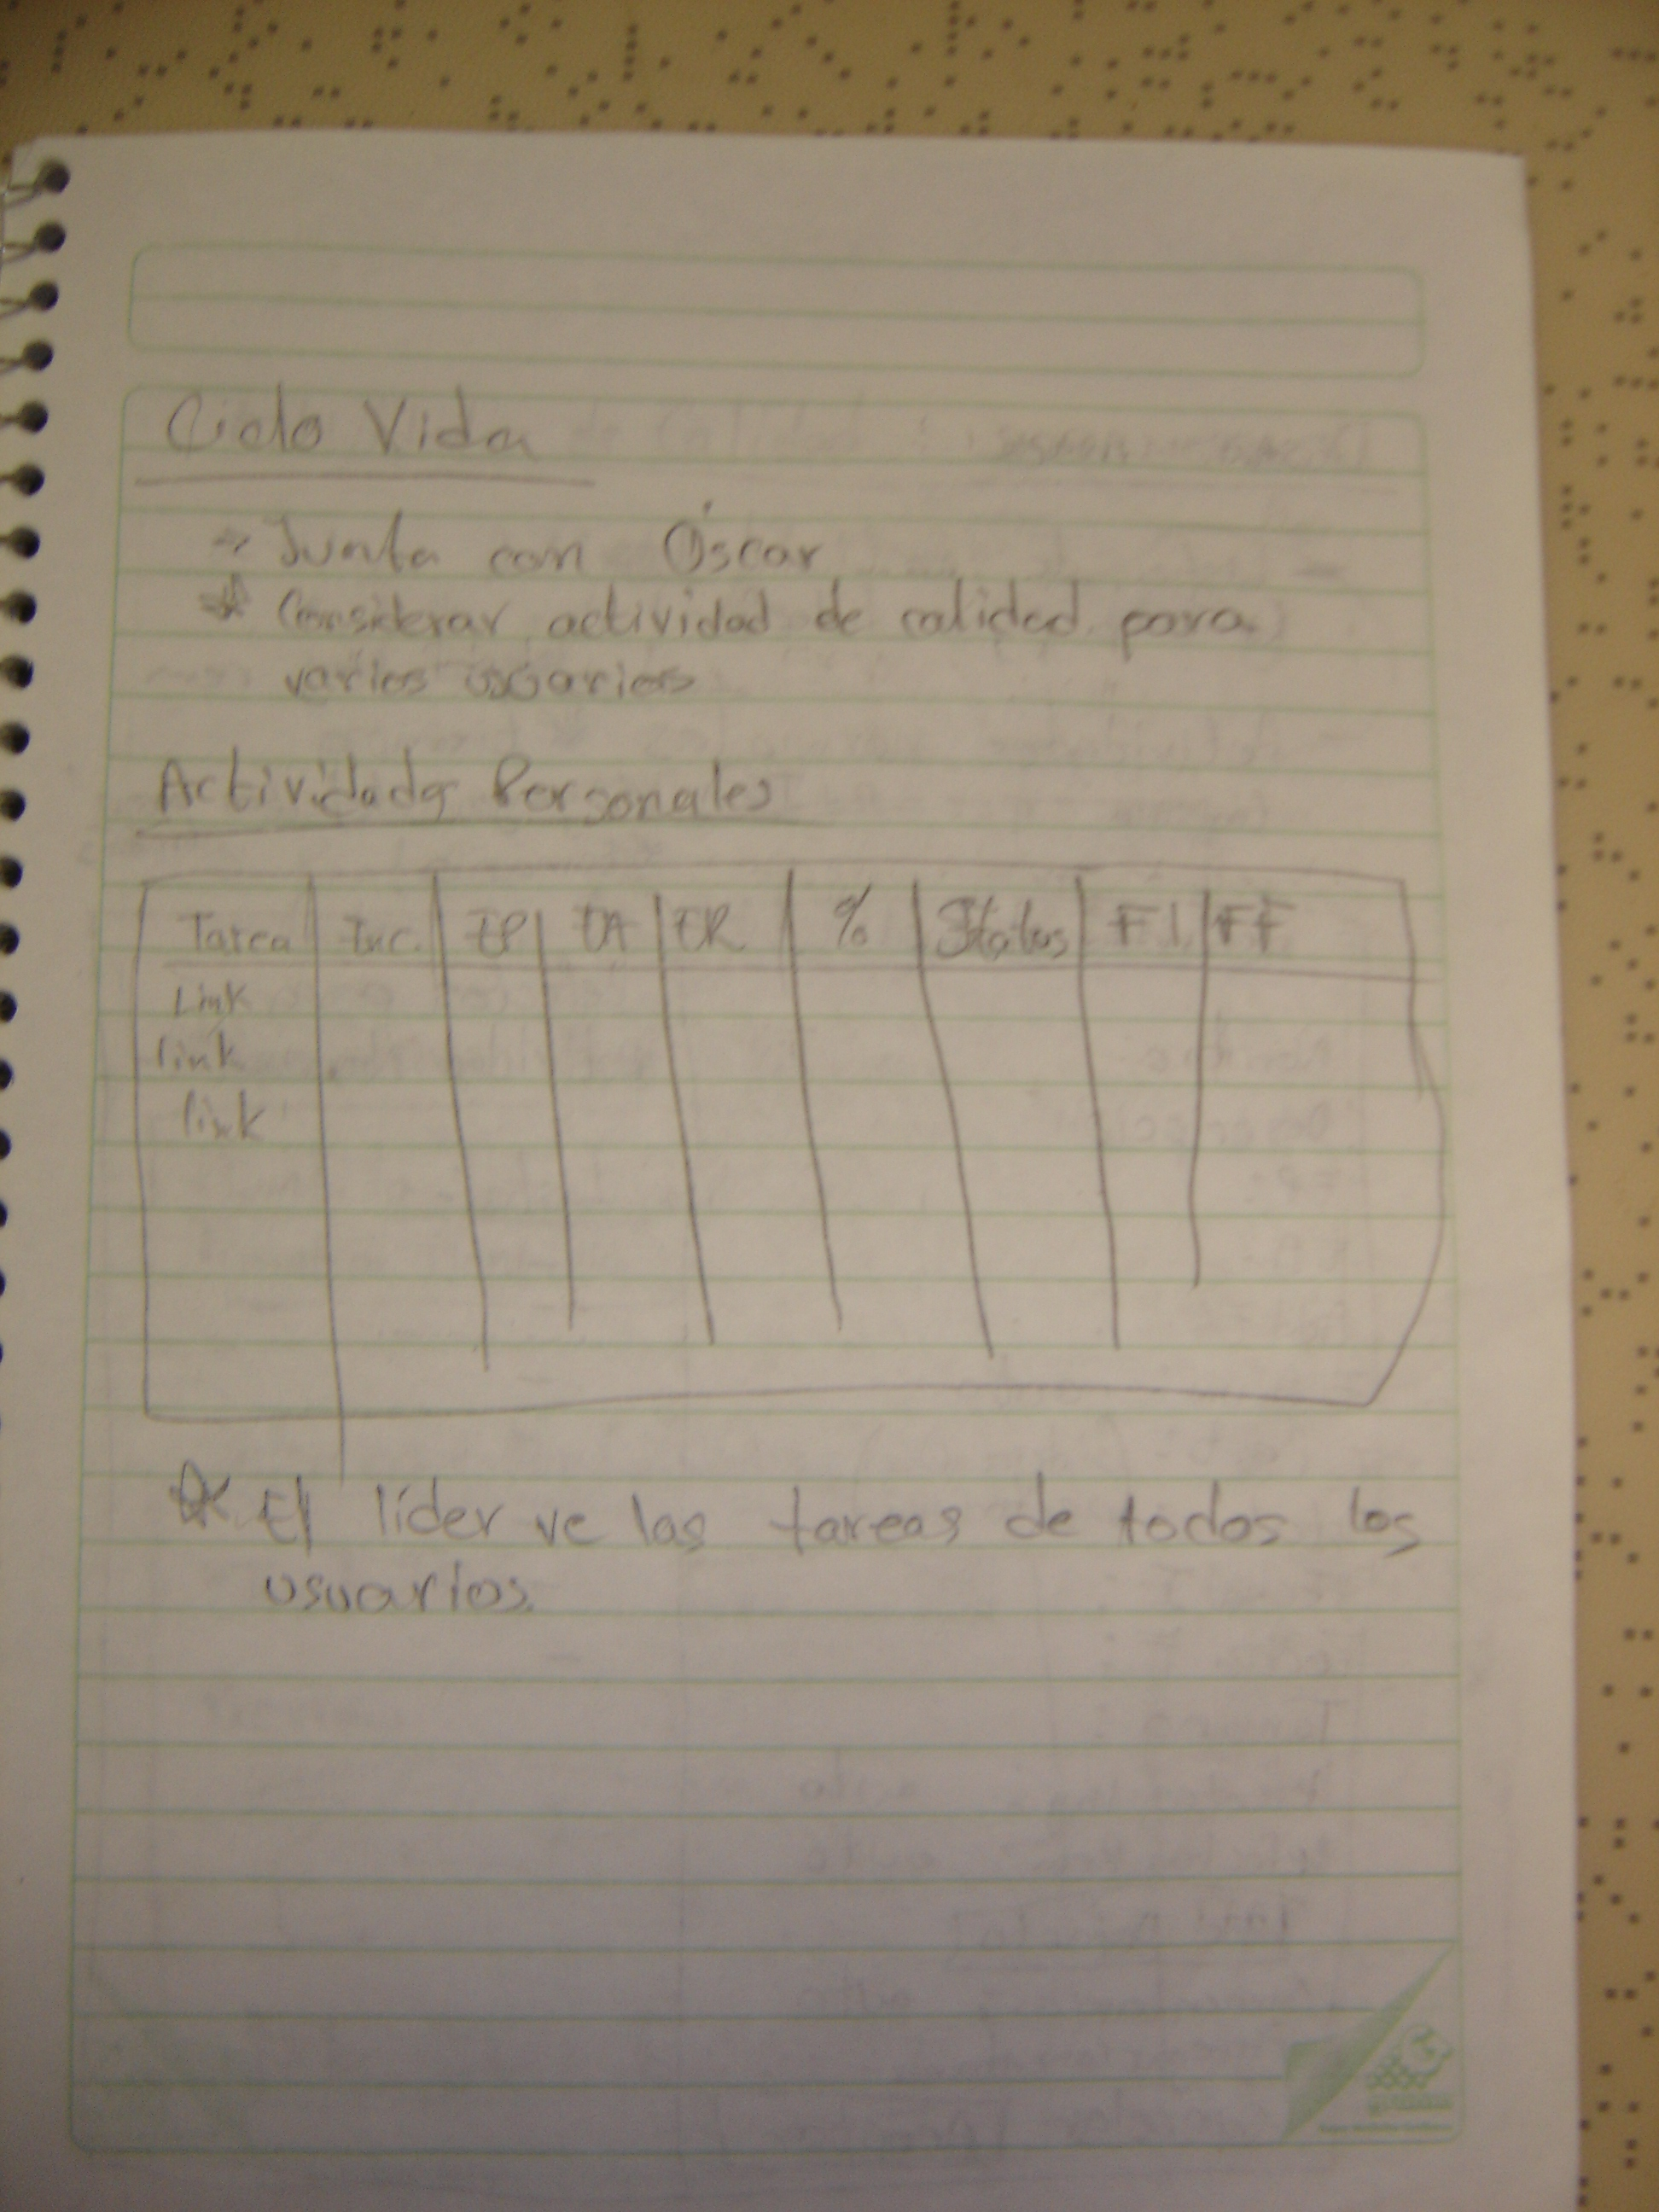 Ciclo Vida
→ Junta con Óscar
* Considerar actividad de calidad para
varios usuarios
Actividades Personales
Tarea Inc. EP EA ER % Status FI FF
Link
link
link
* El líder ve las tareas de todos los
usuarios.